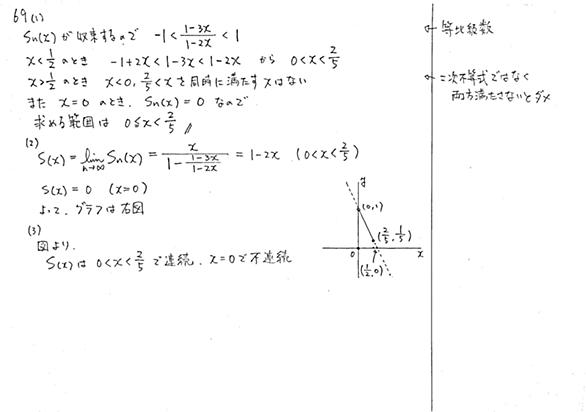 69 (1)
Sn(x) が収束するので -1 < (1-3x)/(1-2x) < 1
x < 1/2 のとき -1+2x < 1-3x < 1-2x から 0 < x < 2/5
x > 1/2 のとき x < 0, 2/5 < x を同時に満たす x はない
また x = 0 のとき、Sn(x) = 0 なので
求める範囲は 0 ≦ x < 2/5 //
(2)
S(x) = lim n→∞ Sn(x) = x/(1 - (1-3x)/(1-2x)) = 1-2x (0 < x < 2/5)
S(x) = 0 (x=0)
よって、グラフは右図
(3)
図より、
S(x) は 0 < x < 2/5 で連続、x=0 で不連続
y
(0,1)
(2/5, 1/5)
0
x
(1/2, 0)
等比級数
二次不等式ではなく
両方満たさないとダメ